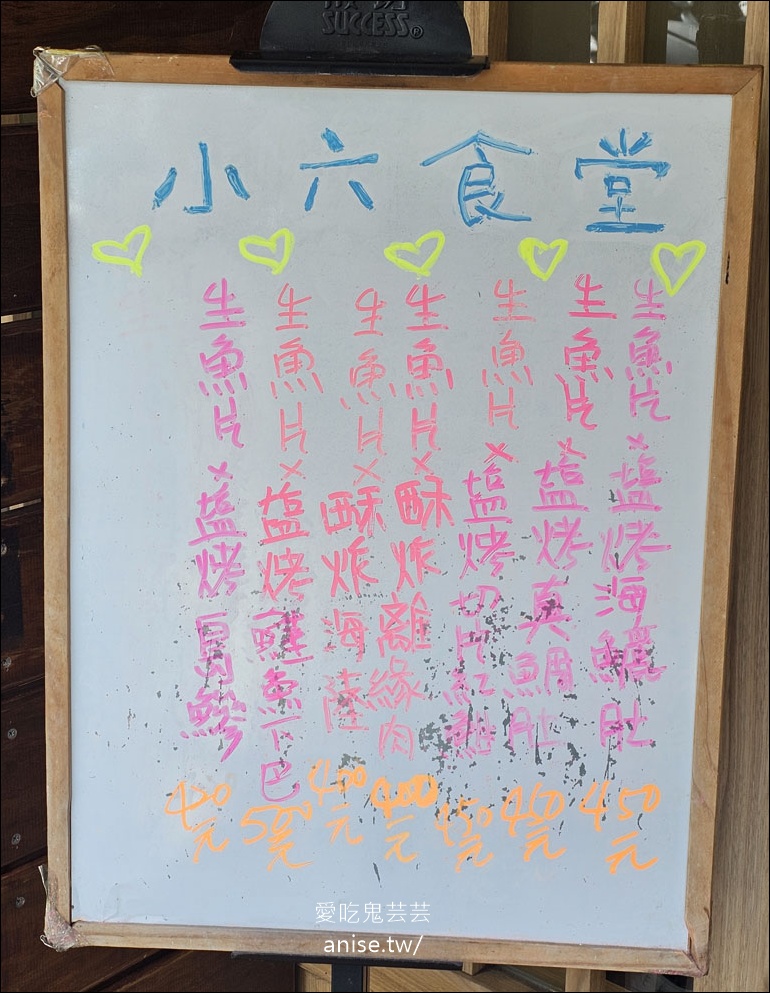 SUCCESS®
小六食堂
生魚片×塩烤海鱺肚
450元
生魚片×塩烤真鯛肚
450元
生魚片×塩烤切片紅魽
450元
生魚片×酥炸離緣肉
400元
生魚片×酥炸海陸
400元
生魚片×塩烤鰱魚下巴
500元
生魚片×塩烤
420元
愛吃鬼芸芸
anise.tw/